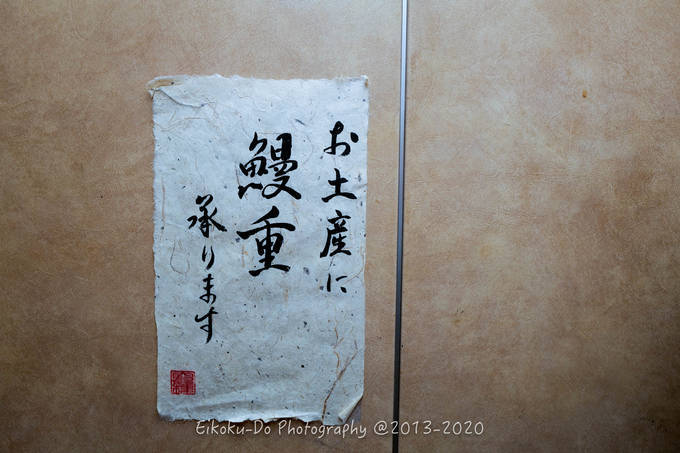 お土産に
鰻重
承ります
Eikoku-Do Photography @2013-2020